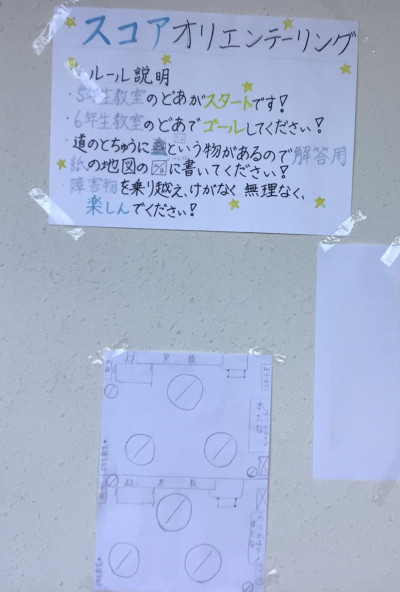 スコアオリエンテーリング
ルール説明
・5年生教室のどあがスタートです!
・6年生教室のどあでゴールしてください!
道のとちゅうに という物があるので解答用
紙の地図の に書いてください!
・障害物を乗り越え、けがなく無理なく、
楽しんでください!
黒板
黒板